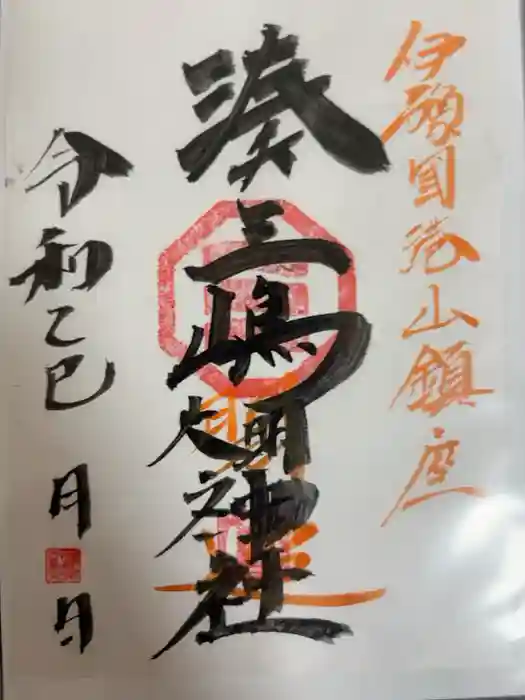 伊豫国港山鎮座
湊三嶋大明神社
令和乙巳 月 日